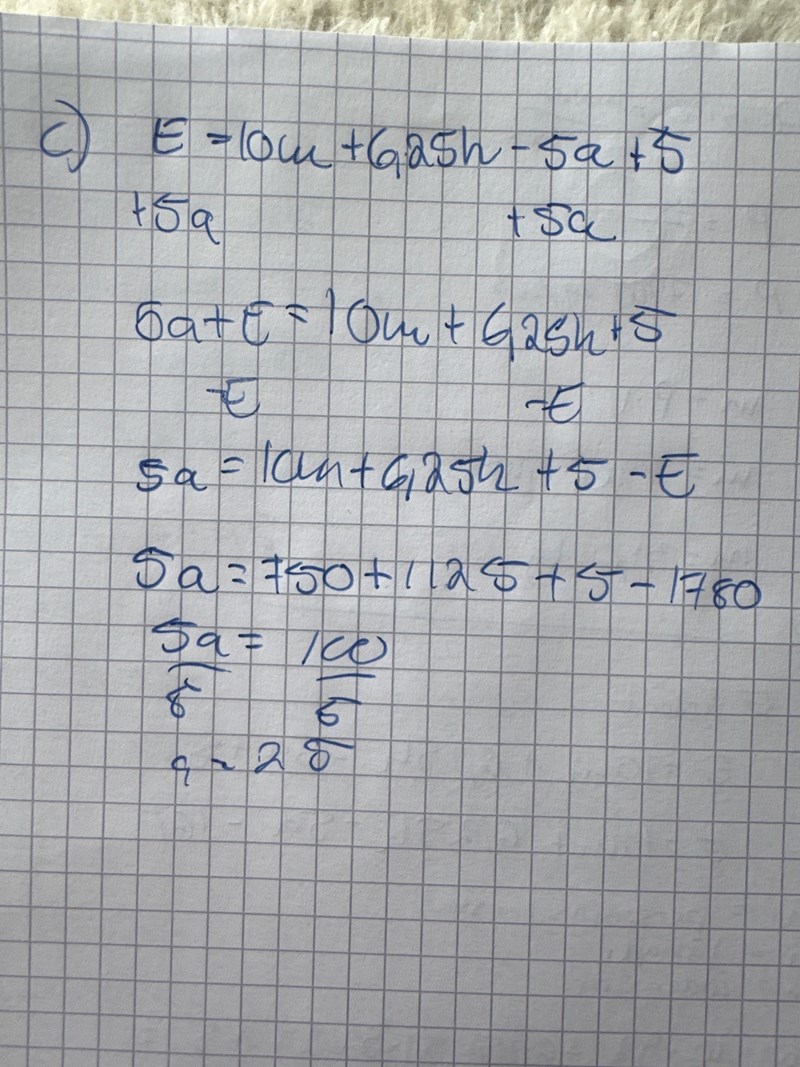 c) E = 10m + 6,25h - 5a + 5
+5a +5a
5a + E = 10m + 6,25h + 5
-E -E
5a = 10m + 6,25h + 5 - E
5a = 750 + 1125 + 5 - 1780
5a = 100
5 5
a = 25